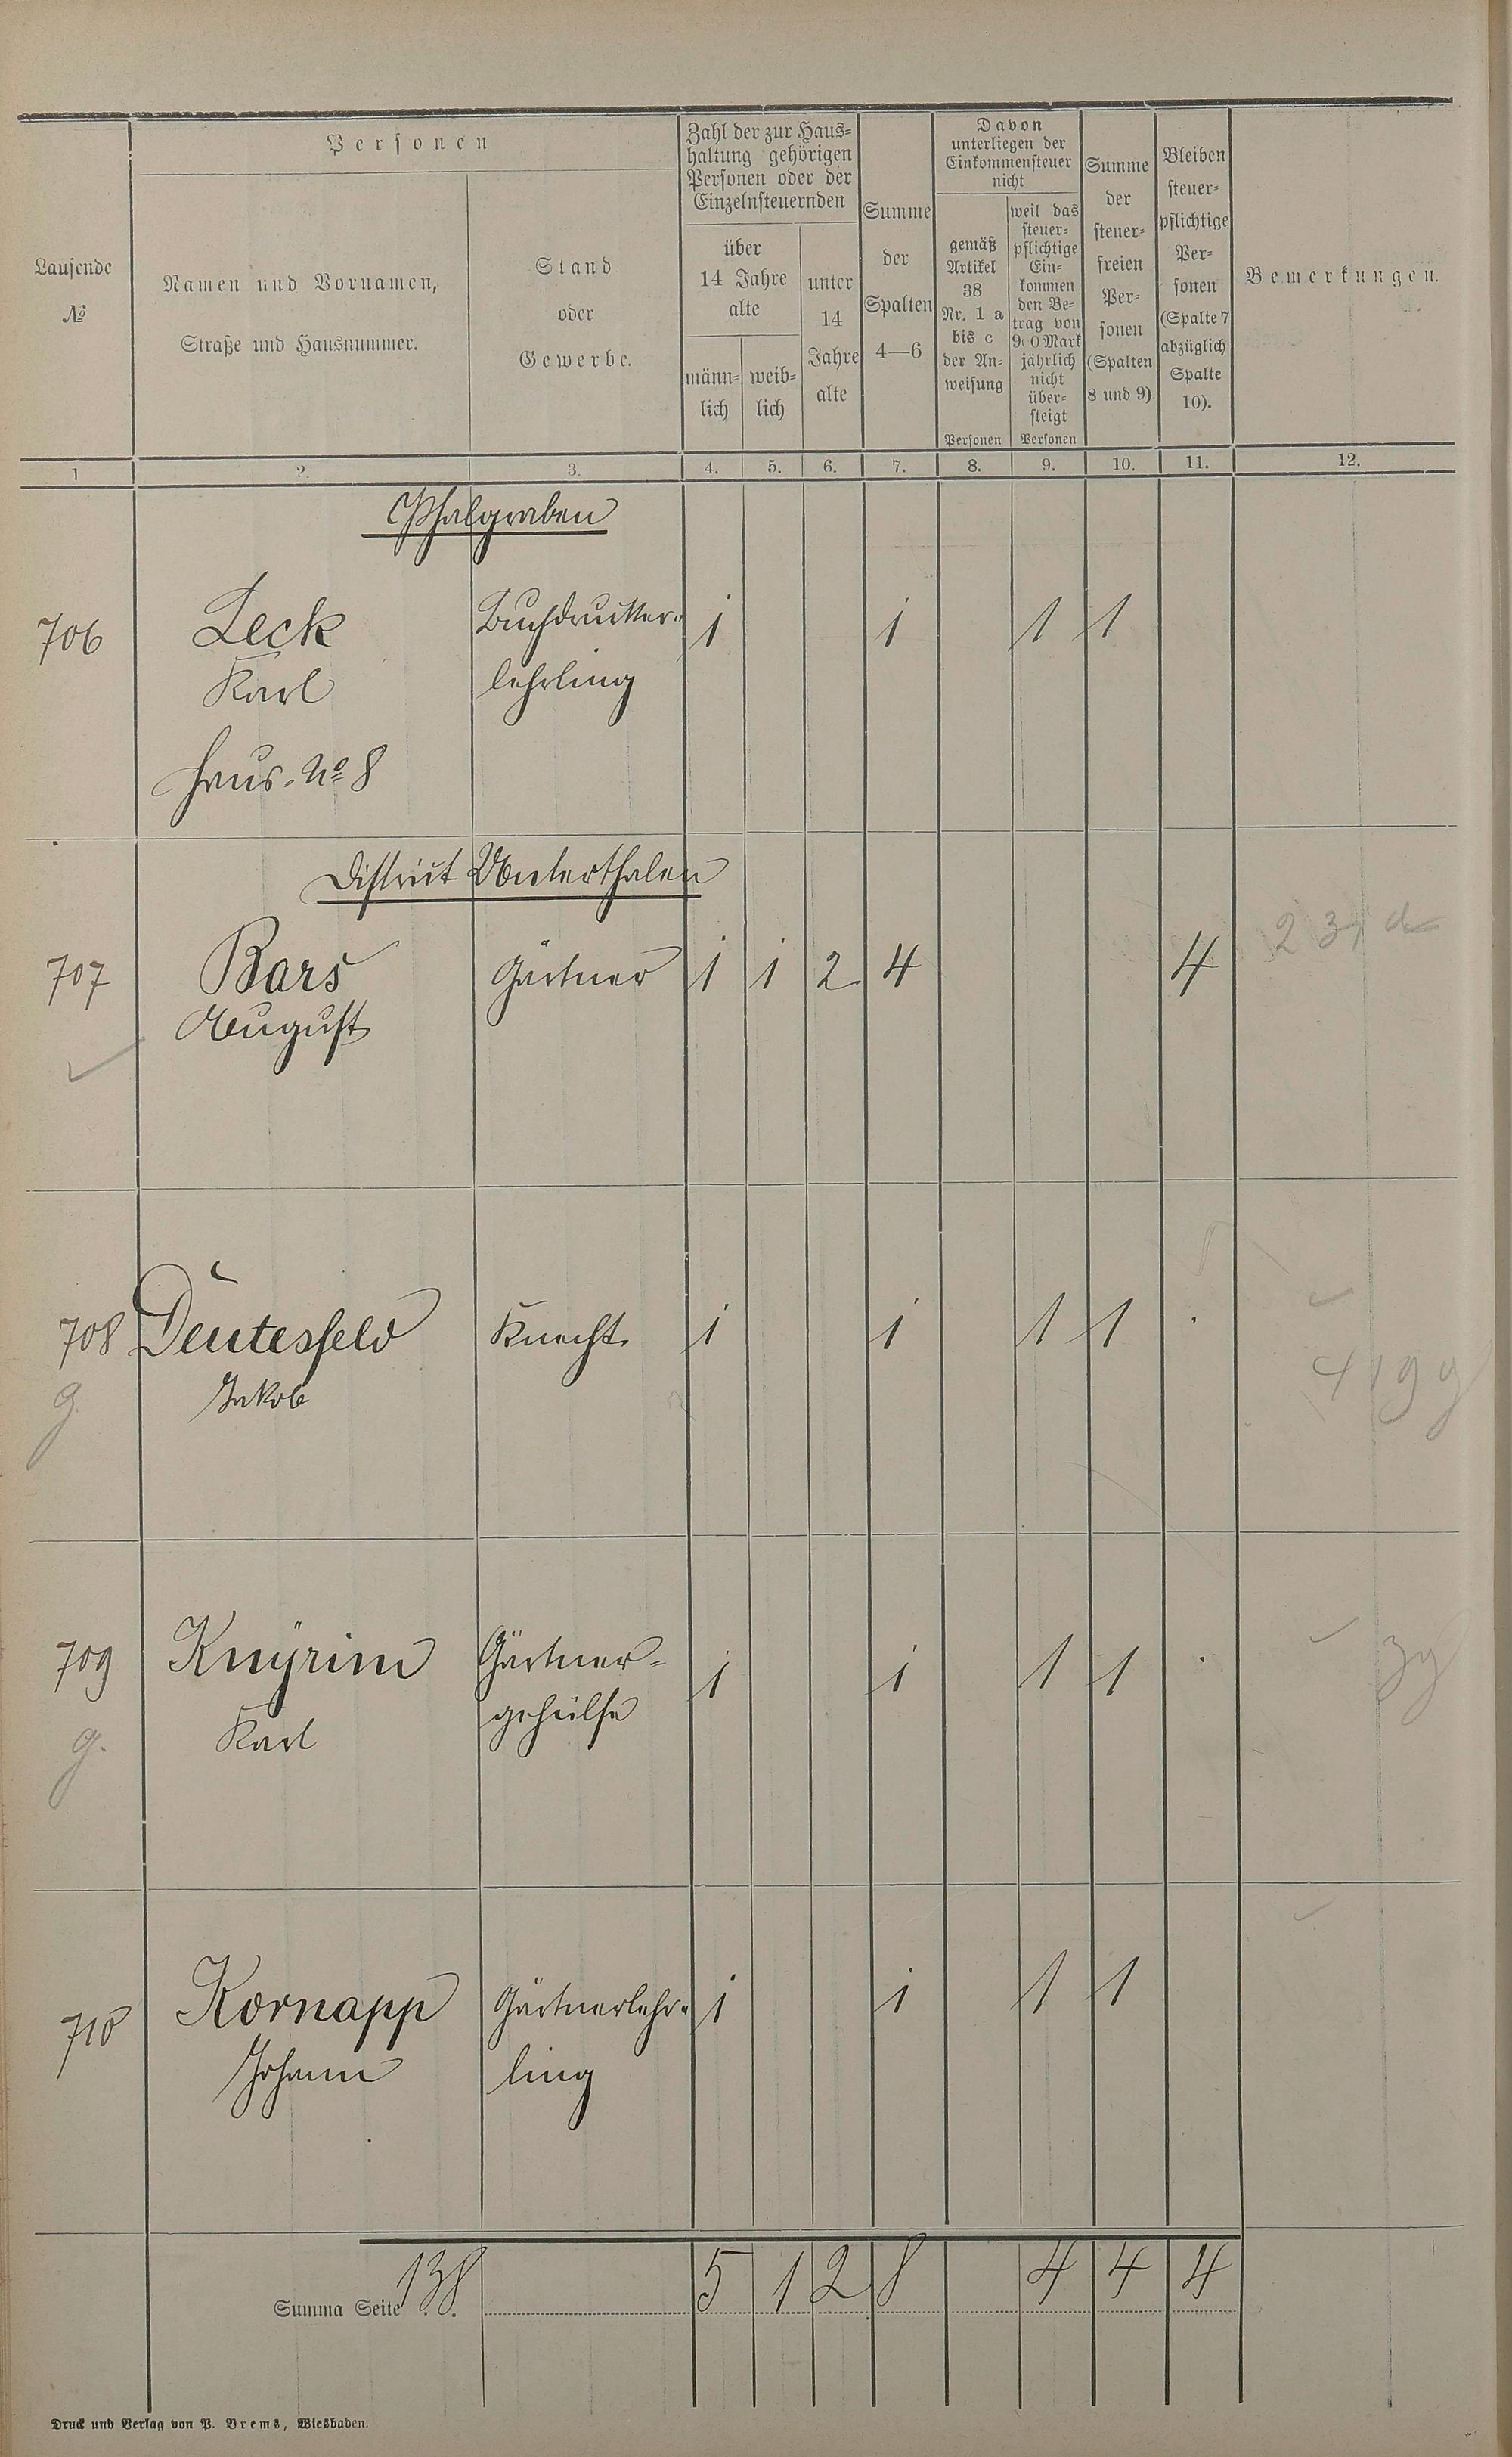 Personen
Zahl der zur Haus=
haltung gehörigen
Personen oder der
Einzelnsteuernden
Davon
unterliegen der
Einkommensteuer
nicht
Laufende
№
Namen und Vornamen,
Straße und Hausnummer.
Stand
oder
Gewerbe.
über
14 Jahre
alte
männ=
lich
weib=
lich
unter
14
Jahre
alte
Summe
der
Spalten
4—6
gemäß
Artikel
38
Nr. 1 a
bis c
der An=
weisung
Personen
weil das
steuer=
pflichtige
Ein=
kommen
den Be=
trag von
900 Mark
jährlich
nicht
über=
steigt
Personen
Summe
der
steuer=
freien
Per=
sonen
(Spalten
8 und 9).
Bleiben
steuer=
pflichtige
Per=
sonen
(Spalte 7
abzüglich
Spalte
10).
Bemerkungen.
1 2. 3. 4. 5. 6. 7. 8. 9. 10. 11. 12.
Pfhalgraben
706 Leck Buchdrucker- 1 1 1 1
Karl lehrling
Haus. No 8
District Unterthalen
707 Bars Gärtner 1 1 2 4 4
August
708 Deutesfeld Knecht 1 1 1 1
g. Jakob
709 Knyrim Gärtner- 1 1 1 1
Karl gehülfe
g.
710 Kornapp Gärtnerlehr- 1 1 1 1
Johann ling
Summa Seite 138. 5 1 2 8 4 4 4
Druck und Verlag von P. Brems, Wiesbaden.